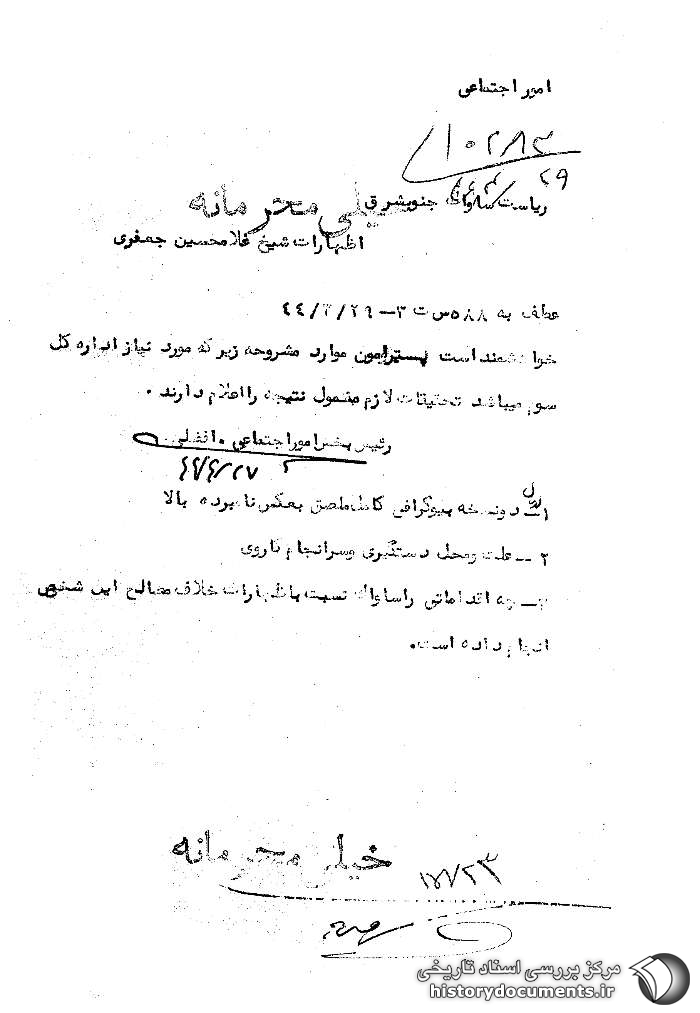 امور اجتماعی
۱۰۲۸۳
۲۹
ریاست ساواک جنوبشرق
خیلی محرمانه
اظهارات شیخ غلامحسین جعفری
عطف به ۵۸۸س ت ۳ـ ۴۴/۳/۲۹
خواهشمند است پیرامون موارد مشروحه زیر که مورد نیاز اداره کل
سوم میباشد تحقیقات لازم معمول نتیجه را اعلام دارند .
رئیس بخش امور اجتماعی . افضلی
۱ــ دو نسخه بیوگرافی کامل ملصق بعکس نامبرده بالا
۲ ــ علت ومحل دستگیری وسرانجام کاروی
۳ــ چه اقداماتی راساواک نسبت باظهارات خلاف مصالح این شخص
انجام داده است .
خیلی محرمانه
مرکز بررسی اسناد تاریخی
historydocuments.ir